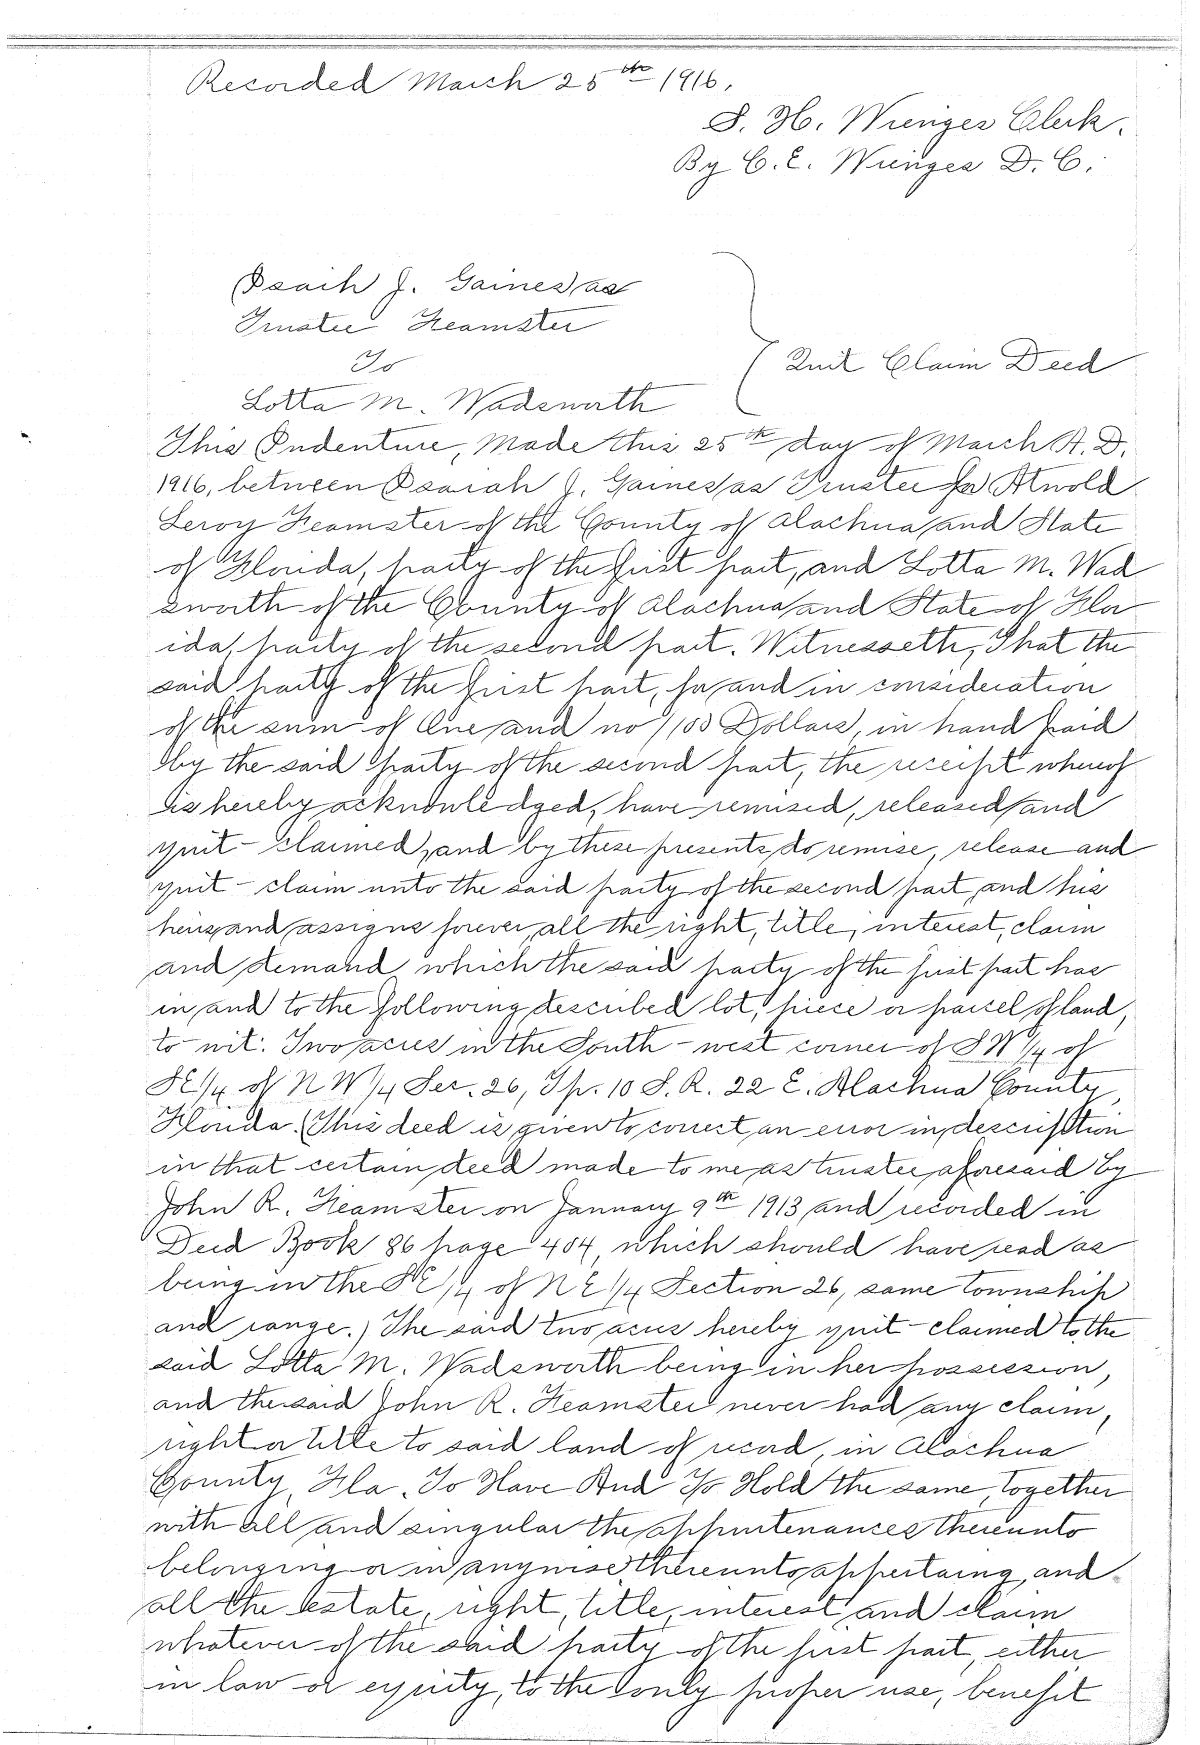 Recorded March 25th 1916.
S. H. Wienges Clerk.
By C. E. Wienges D. C.
Isaih J. Gaines as
Trustee Feamster
To
Quit Claim Deed
Lotta M. Wadsworth
This Indenture, Made this 25th day of March A. D.
1916, between Isaiah J. Gaines as Trustee for Arnold
Leroy Feamster of the County of Alachua and State
of Florida, party of the first part, and Lotta M. Wad
sworth of the County of Alachua and State of Flor
ida, party of the second part. Witnesseth, That the
said party of the first part, for and in consideration
of the sum of One and no/100 Dollars, in hand paid
by the said party of the second part, the receipt whereof
is hereby acknowledged, have remised, released and
quit-claimed, and by these presents do remise, release and
quit-claim unto the said party of the second part, and his
heirs and assigns forever, all the right, title, interest, claim
and demand which the said party of the first part has
in and to the following described lot, piece or parcel of land,
to wit: Two acres in the South-west corner of SW 1/4 of
SE 1/4 of NW 1/4 Sec. 26, Tp. 10 S. R. 22 E. Alachua County,
Florida. (This deed is given to correct an error in description
in that certain deed made to me as trustee aforesaid by
John R. Feamster on January 9th 1913 and recorded in
Deed Book 86 page 404, which should have read as
being in the SE 1/4 of NE 1/4 Section 26, same township
and range.) The said two acres hereby quit-claimed to the
said Lotta M. Wadsworth being in her possession,
and the said John R. Feamster never had any claim,
right or title to said land of record, in Alachua
County, Fla. To Have And To Hold the same, together
with all and singular the appurtenances thereunto
belonging or in anywise thereunto appertaing, and
all the estate, right, title, interest and claim
whatever of the said party of the first part, either
in law or equity, to the only proper use, benefit